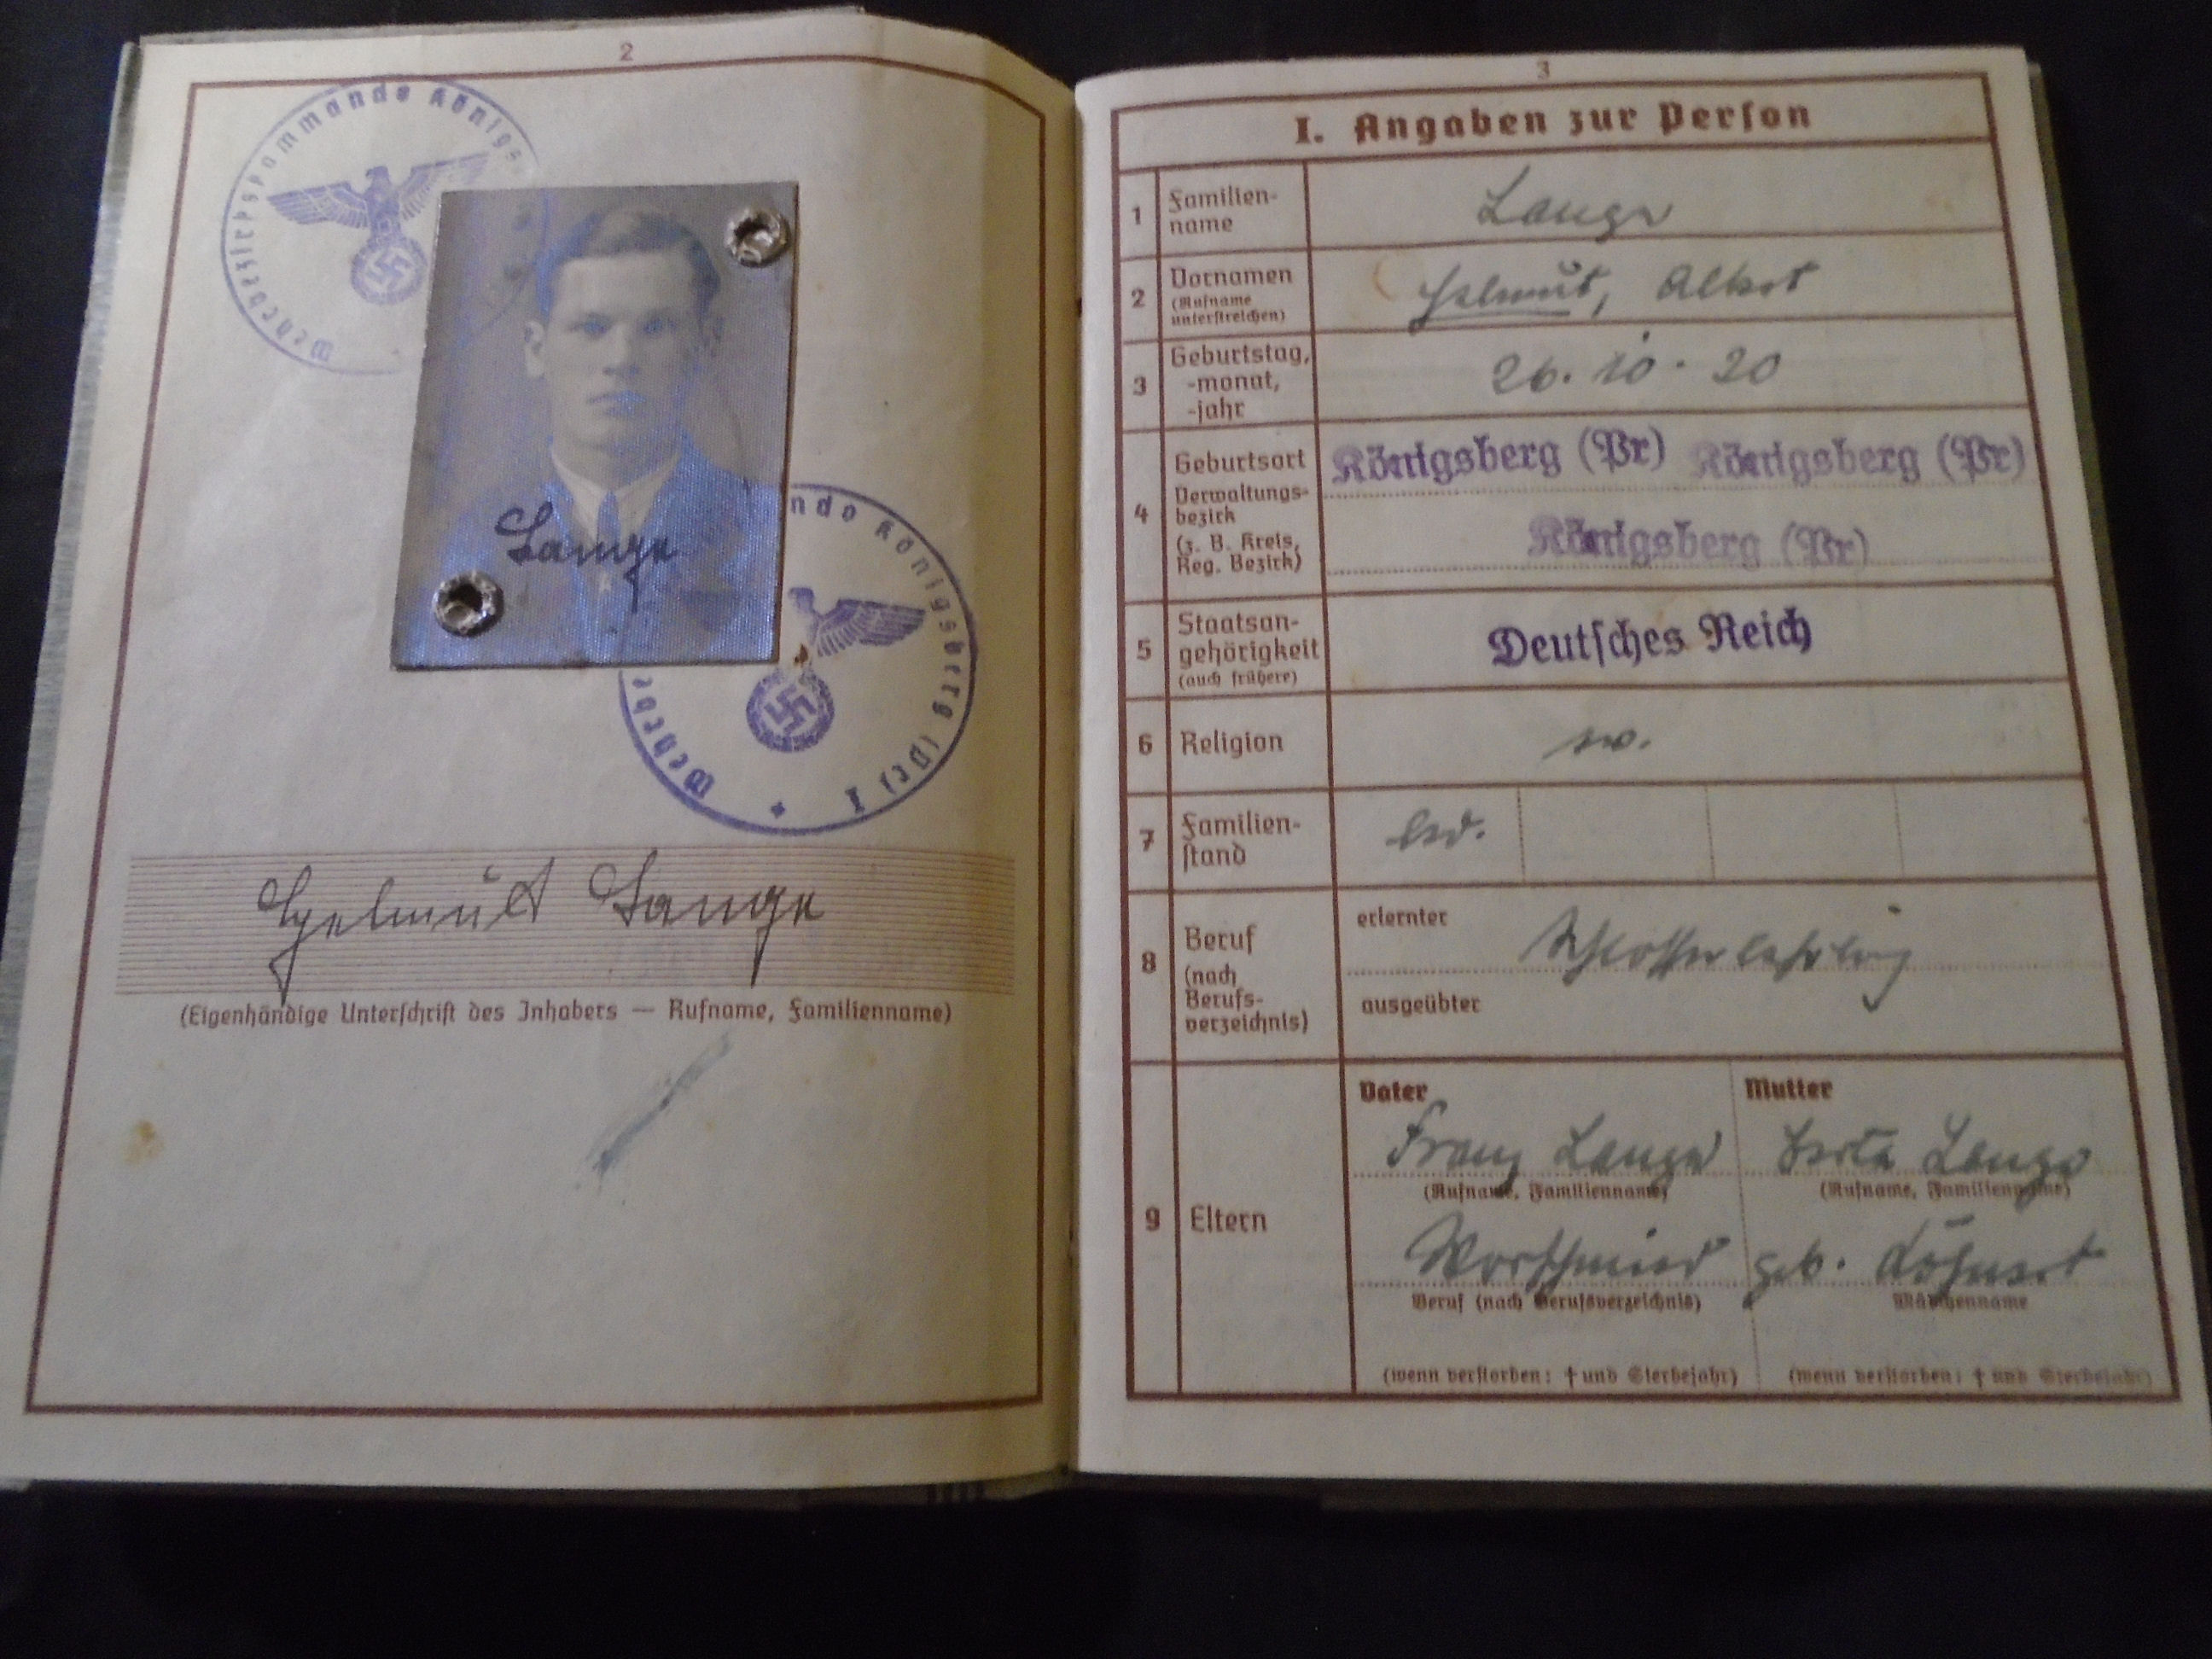 2
Wehrbezirkskommando Königs
Lange
Wehrbe
ndo Königsberg (Pr) I
Helmut Lange
(Eigenhändige Unterschrift des Inhabers — Rufname, Familienname)
3
I. Angaben zur Person
1 Familien-
name
Lange
2 Vornamen
(Rufname
unterstreichen)
Helmut, Albert
3 Geburtstag,
-monat,
-jahr
26. 10. 20
4 Geburtsort
Verwaltungs-
bezirk
(z. B. Kreis,
Reg. Bezirk)
Königsberg (Pr) Königsberg (Pr)
Königsberg (Pr)
5 Staatsan-
gehörigkeit
(auch frühere)
Deutsches Reich
6 Religion
ev.
7 Familien-
stand
led.
8 Beruf
(nach
Berufs-
verzeichnis)
erlernter
Schlosserlehrling
ausgeübter
9 Eltern
Vater
Franz Lange
(Rufname, Familienname)
Beruf (nach Berufsverzeichnis)
(wenn verstorben: † und Sterbejahr)
Mutter
Berta Lange
(Rufname, Familienname)
geb.
Mädchenname
(wenn verstorben: † und Sterbejahr)